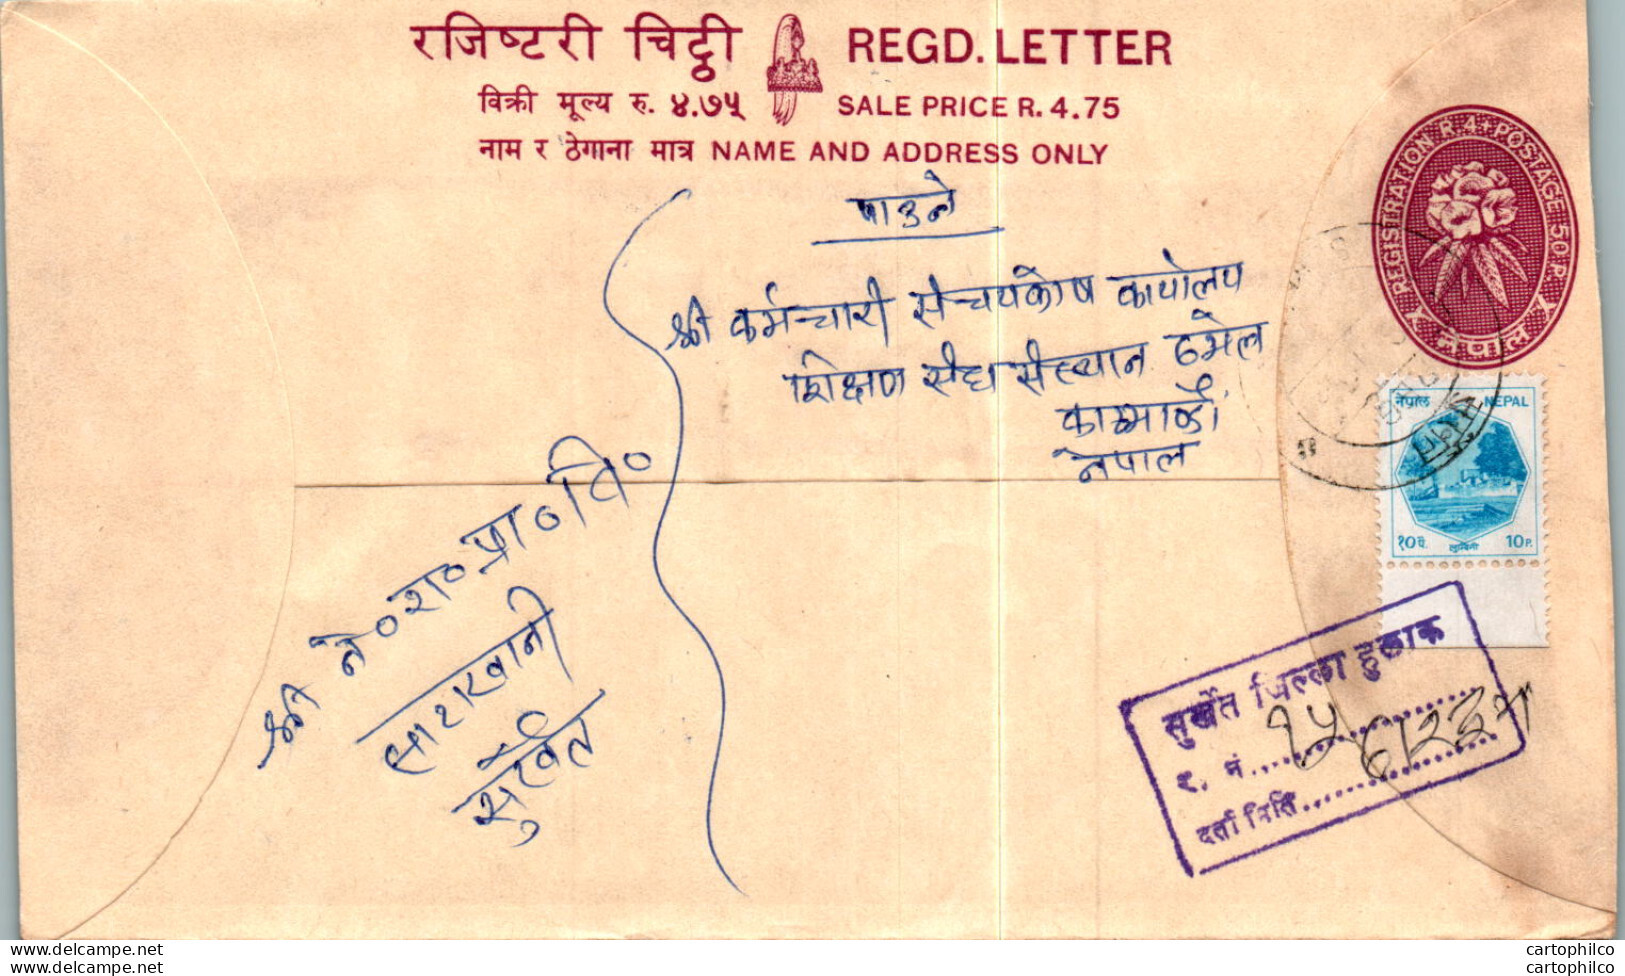 रजिष्टरी चिठ्ठी REGD. LETTER
विक्री मूल्य रु. ४.७५ SALE PRICE R. 4.75
नाम र ठेगाना मात्र NAME AND ADDRESS ONLY
REGISTRATION R 4+POSTAGE 50 P.
नेपाल
पाउने
श्री कर्मचारी संचयकोष कार्यालय
शिक्षण संघ संस्थान ठमेल
काठमाडौं
नेपाल
नेपाल NEPAL
१० पै. लुम्बिनी 10 P.
श्री ने० रा० प्रा० वि०
साटाखानी
सुर्खेत
सुर्खेत जिल्ला हुलाक
र. नं.
दर्ता मिति
cartophilco
cartophilco
cartophilco
cartophilco